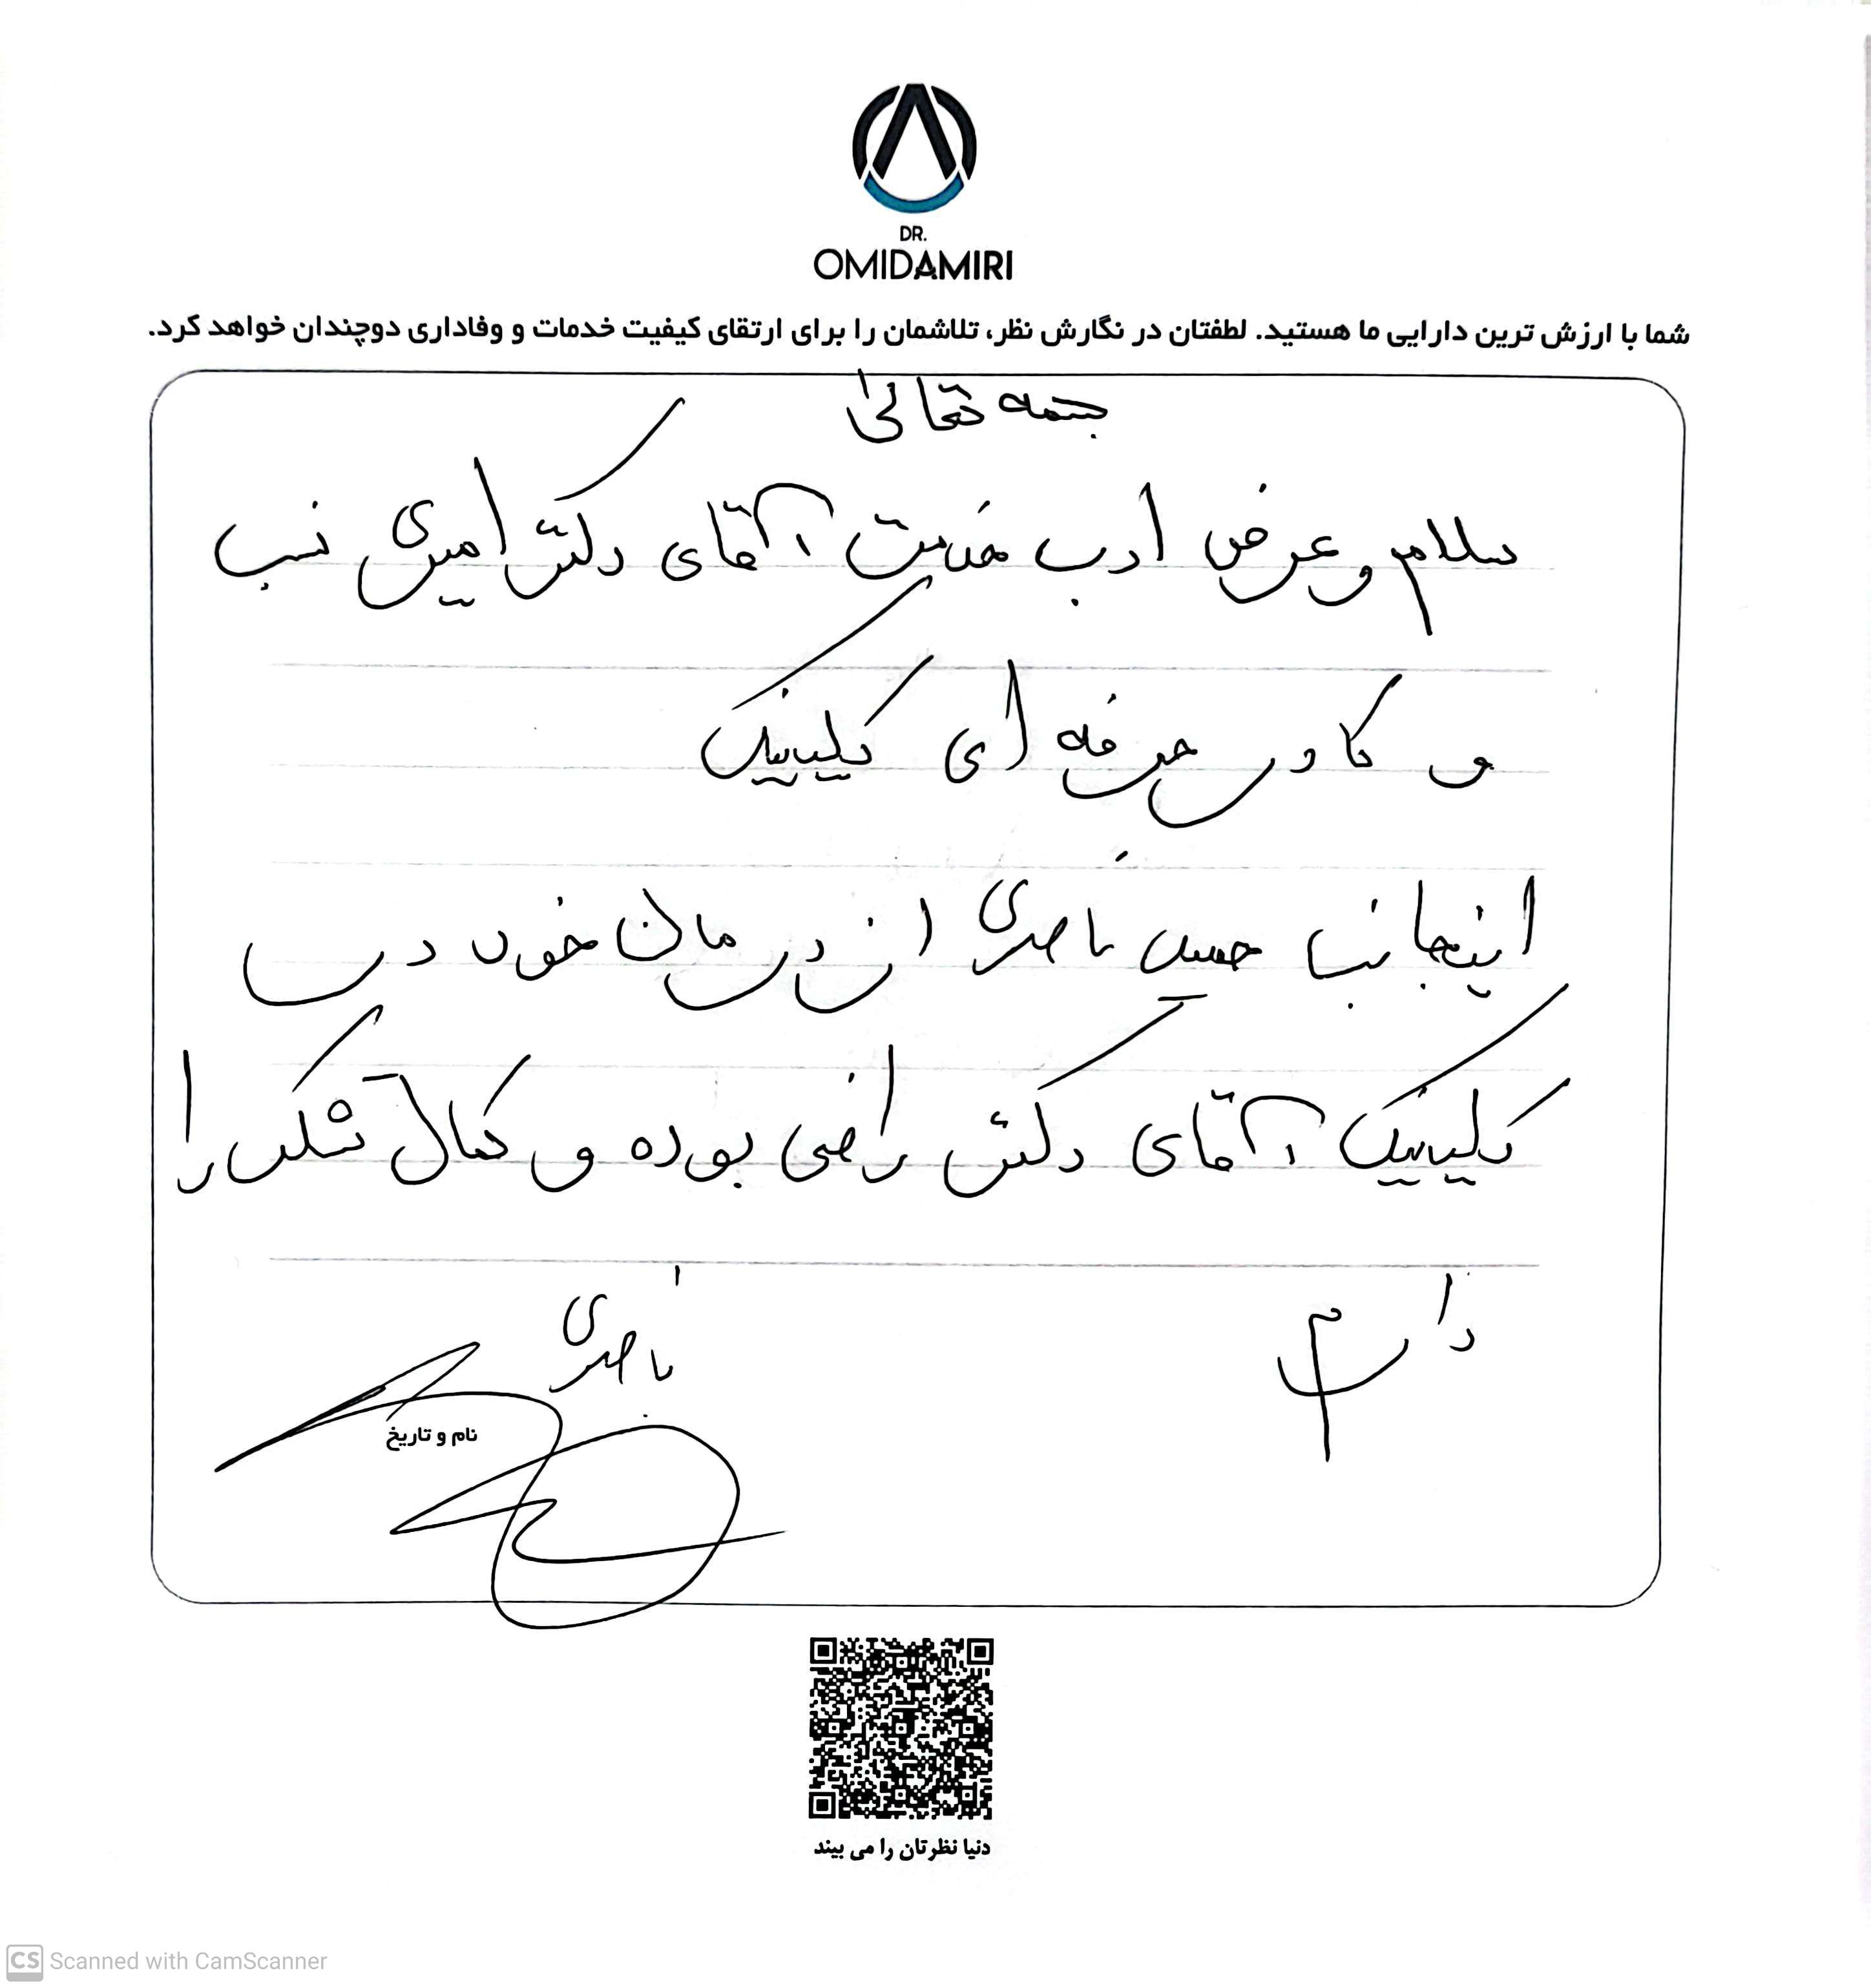 DR.
OMIDAMIRI
شما با ارزش ترین دارایی ما هستید. لطفتان در نگارش نظر، تلاشمان را برای ارتقای کیفیت خدمات و وفاداری دوچندان خواهد کرد.
بسمه تعالی
سلام و عرض ادب خدمت آقای دکتر امیری نسب
و کادر حرفه ای کلینیک
اینجانب حسین ناصری از درمان خود در
کلینیک آقای دکتر راضی بوده و کمال تشکر را
دارم
ناصری
نام و تاریخ
دنیا نظرتان را می بیند
CS Scanned with CamScanner